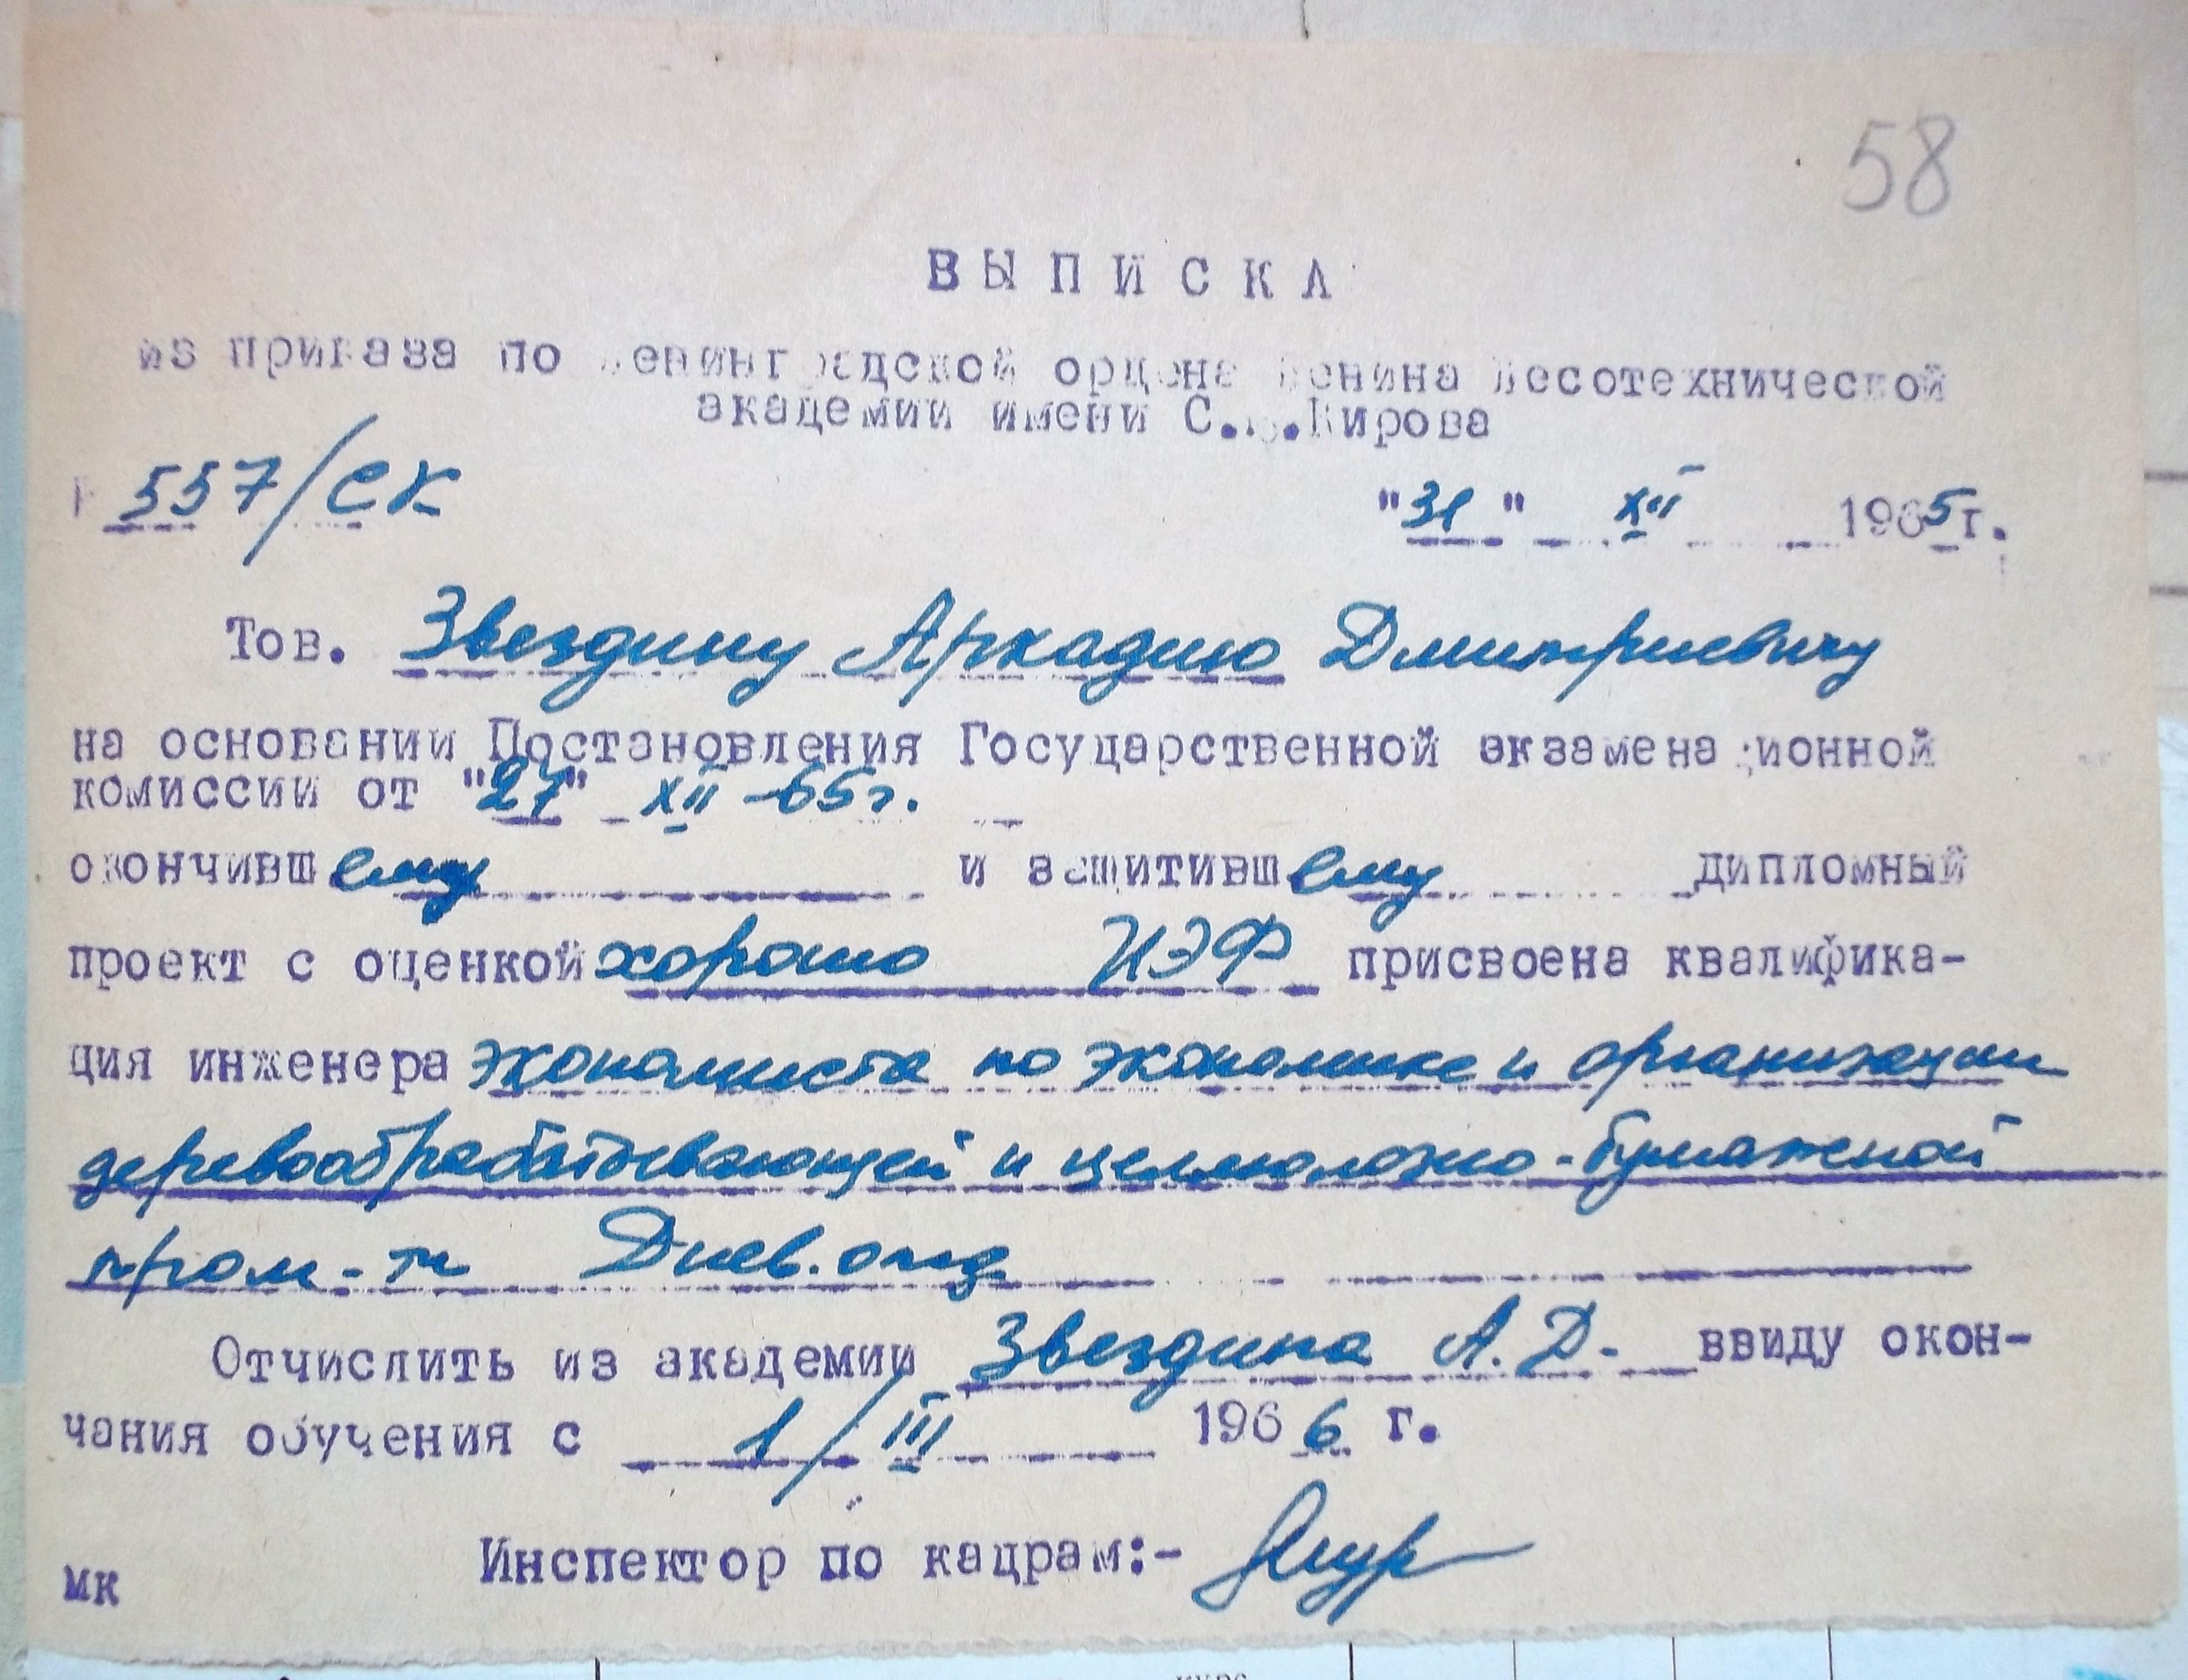 58
ВЫПИСКА
из приказа по Ленинградской ордена Ленина Лесотехнической
академии имени С.М.Кирова
№ 557/СК "31" XII 1965г.
Тов. Звездину Аркадию Дмитриевичу
на основании Постановления Государственной экзаменационной
комиссии от "27" XII-65г.
окончившему и защитившему дипломный
проект с оценкой хорошо ИЭФ присвоена квалифика-
ция инженера экономиста по экономике и организации
деревообрабатывающей и целлюлозно-бумажной
пром-ти Днев. отд.
Отчислить из академии Звездина А.Д. ввиду окон-
чания обучения с 1/III 1966 г.
Инспектор по кадрам:-
мк
курс